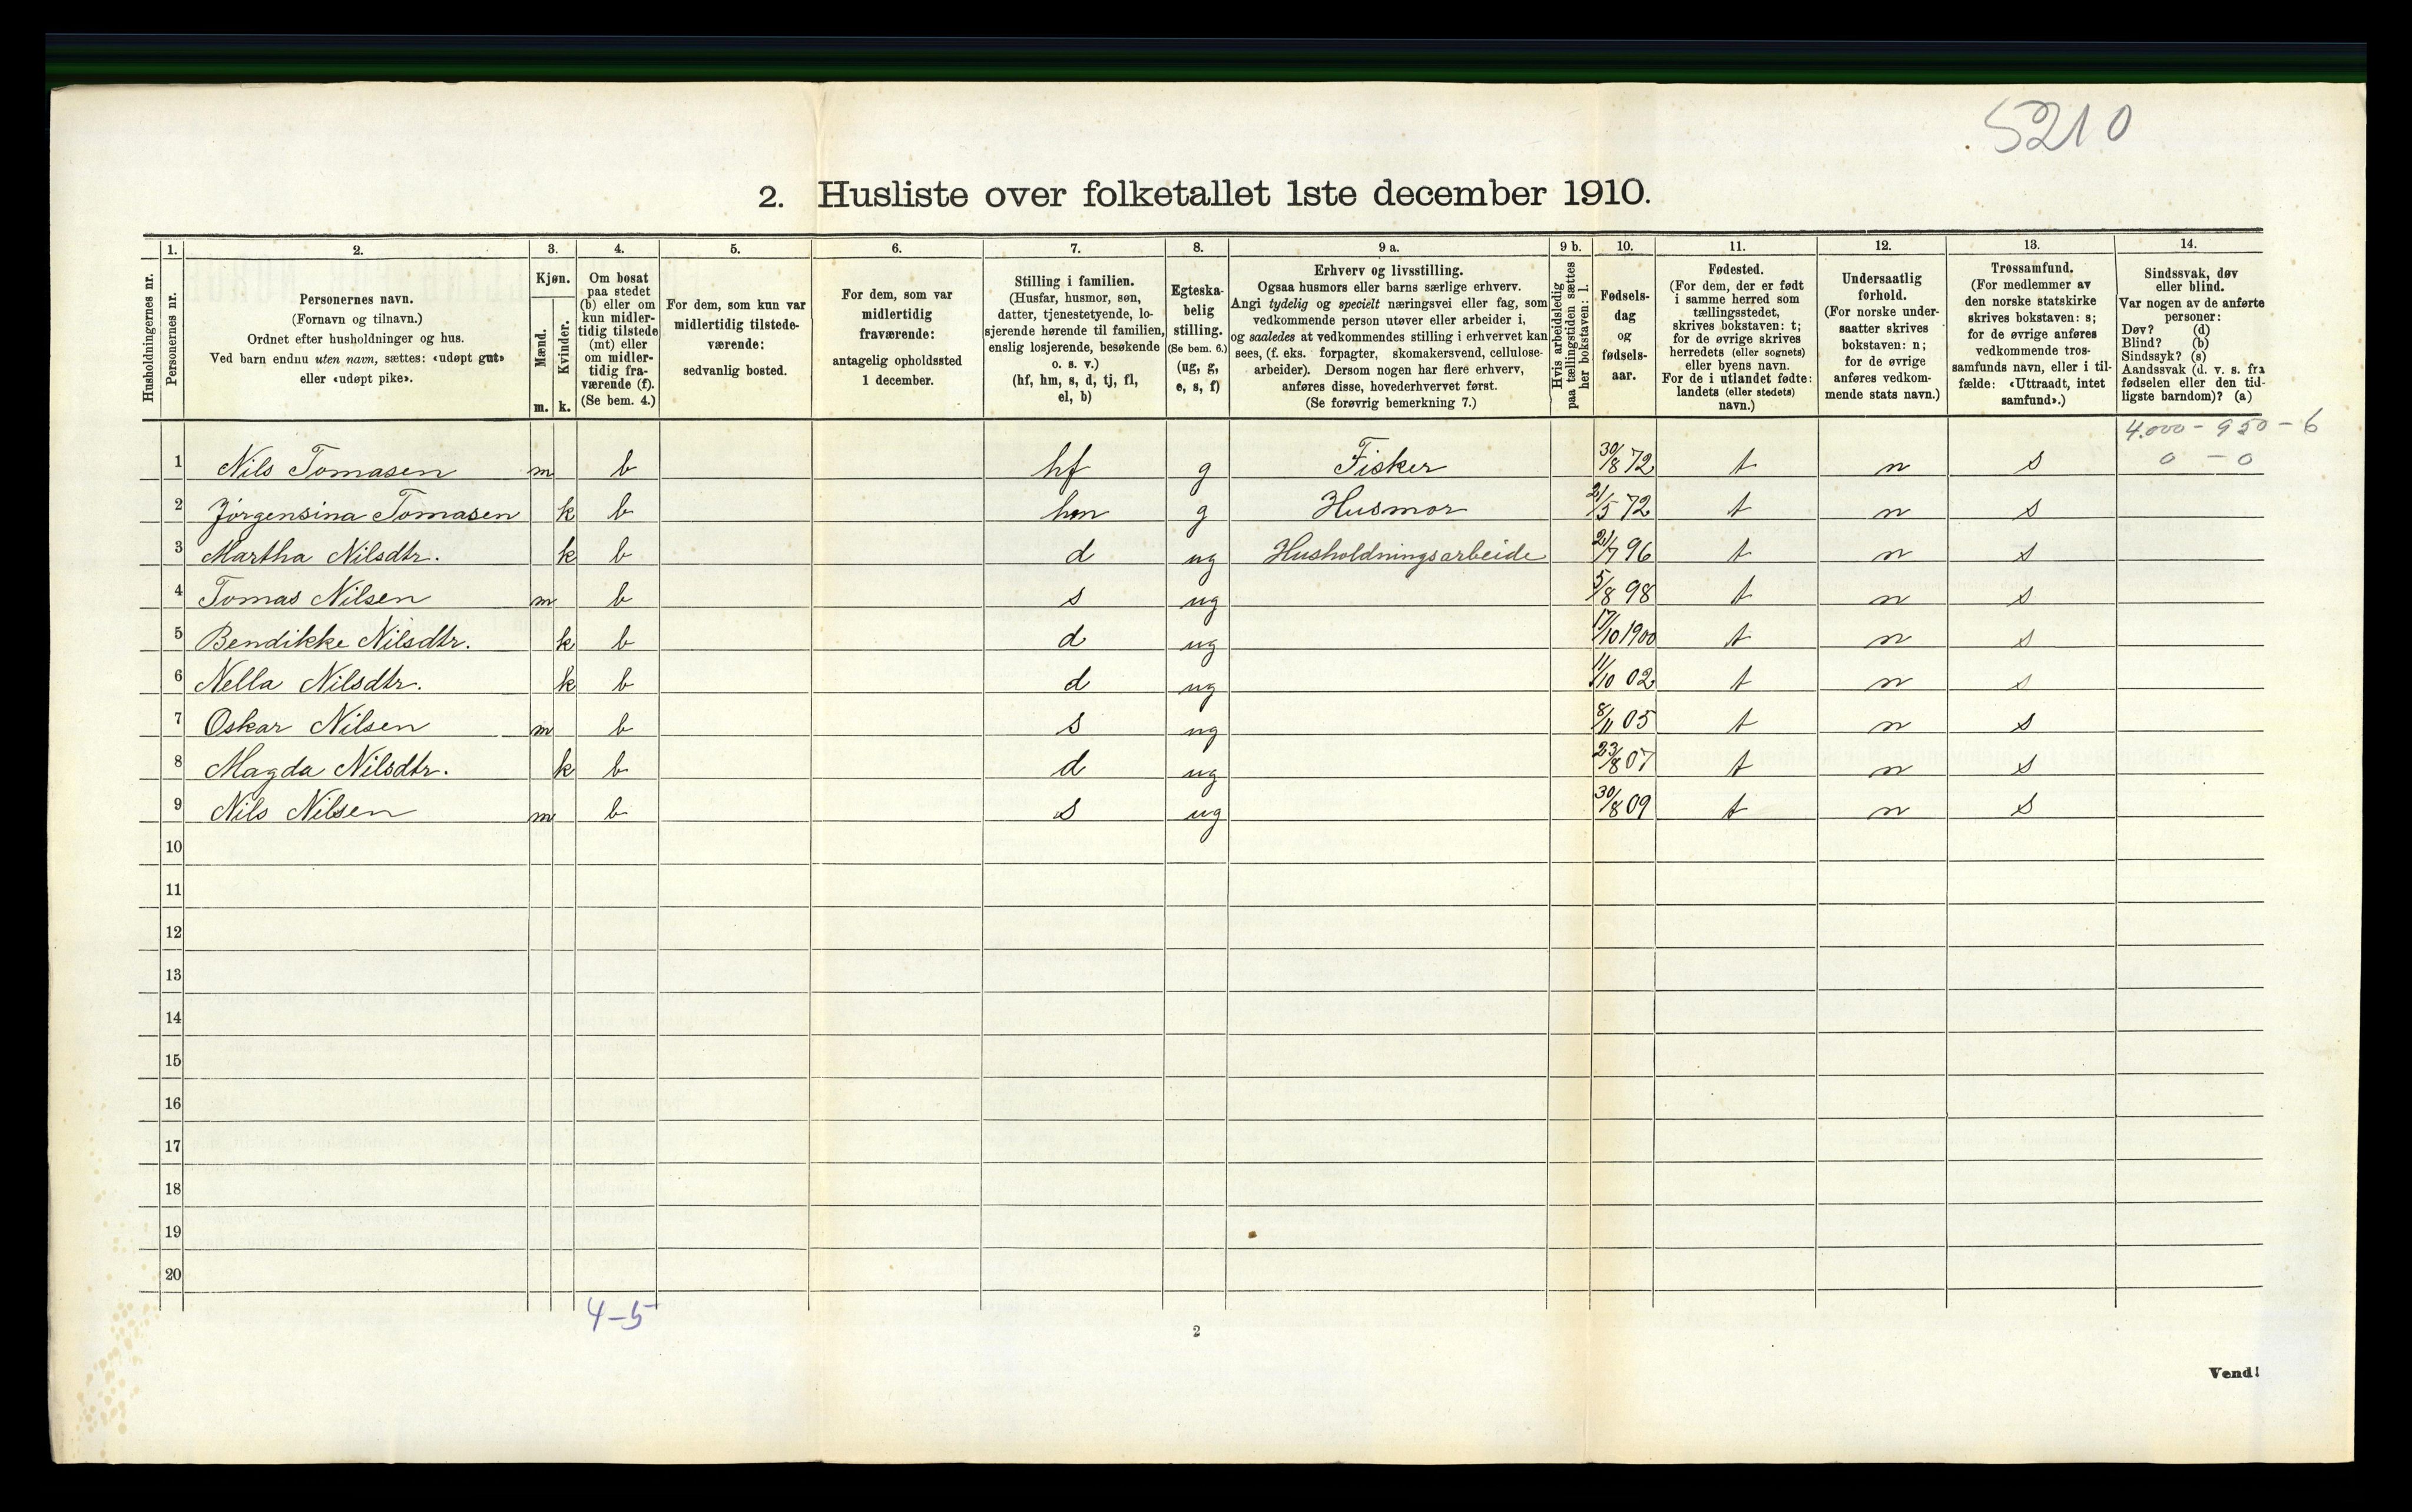 5210
2. Husliste over folketallet 1ste december 1910.
Husholdningernes nr.
1.
Personernes nr.
2.
Personernes navn.
(Fornavn og tilnavn.)
Ordnet efter husholdninger og hus.
Ved barn endnu uten navn, sættes: «udøpt gut»
eller «udøpt pike».
3.
Kjøn.
Mænd.
Kvinder.
m. k.
4.
Om bosat
paa stedet
(b) eller om
kun midler-
tidig tilstede
(mt) eller
om midler-
tidig fra-
værende (f).
(Se bem. 4.)
5.
For dem, som kun var
midlertidig tilstede-
værende:
sedvanlig bosted.
6.
For dem, som var
midlertidig
fraværende:
antagelig opholdssted
1 december.
7.
Stilling i familien.
(Husfar, husmor, søn,
datter, tjenestetyende, lo-
sjerende hørende til familien,
enslig losjerende, besøkende
o. s. v.)
(hf, hm, s, d, tj, fl,
el, b)
8.
Egteska-
belig
stilling.
(Se bem. 6.)
(ug, g,
e, s, f)
9 a.
Erhverv og livsstilling.
Ogsaa husmors eller barns særlige erhverv.
Angi tydelig og specielt næringsvei eller fag, som
vedkommende person utøver eller arbeider i,
og saaledes at vedkommendes stilling i erhvervet kan
sees, (f. eks. forpagter, skomakersvend, cellulose-
arbeider). Dersom nogen har flere erhverv,
anføres disse, hovederhvervet først.
(Se forøvrig bemerkning 7.)
9 b.
Hvis arbeidsledig
paa tællingstiden sættes
her bokstaven: l.
10.
Fødsels-
dag
og
fødsels-
aar.
11.
Fødested.
(For dem, der er født
i samme herred som
tællingsstedet,
skrives bokstaven: t;
for de øvrige skrives
herredets (eller sognets)
eller byens navn.
For de i utlandet fødte:
landets (eller stedets)
navn.)
12.
Undersaatlig
forhold.
(For norske under-
saatter skrives
bokstaven: n;
for de øvrige
anføres vedkom-
mende stats navn.)
13.
Trossamfund.
(For medlemmer av
den norske statskirke
skrives bokstaven: s;
for de øvrige anføres
vedkommende tros-
samfunds navn, eller i til-
fælde: «Uttraadt, intet
samfund».)
14.
Sindssvak, døv
eller blind.
Var nogen av de anførte
personer:
Døv? (d)
Blind? (b)
Sindssyk? (s)
Aandssvak (d. v. s. fra
fødselen eller den tid-
ligste barndom)? (a)
4.000 - 950 - 6
1 Nils Tomasen m b hf g Fisker 30/8 72 t n s 0 - 0
2 Jørgensina Tomasen k b hm g Husmor 21/5 72 t n s
3 Martha Nilsdtr. k b d ug Husholdningsarbeide 21/7 96 t n s
4 Tomas Nilsen m b s ug 5/8 98 t n s
5 Bendikke Nilsdtr. k b d ug 17/10 1900 t n s
6 Nella Nilsdtr. k b d ug 11/10 02 t n s
7 Oskar Nilsen m b s ug 8/11 05 t n s
8 Magda Nilsdtr. k b d ug 23/8 07 t n s
9 Nils Nilsen m b s ug 30/8 09 t n s
10
11
12
13
14
15
16
17
18
19
20
4-5
2
Vend!